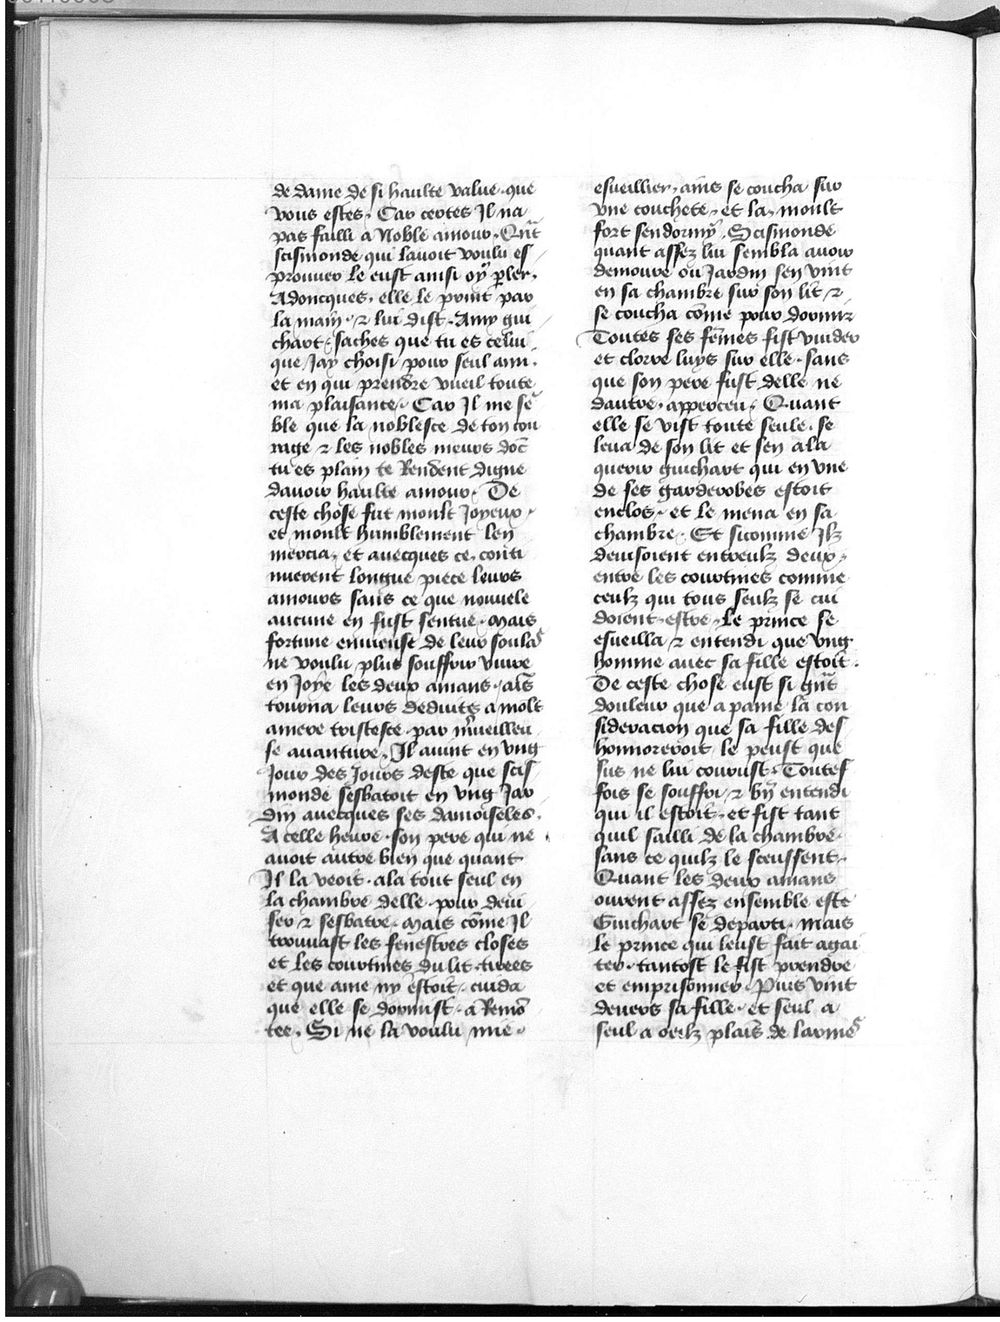 de dame de si haulte value. que
vous estes. Car certes Il na
pas failli a Noble amour. Qūt
scismonde qui lauoit voulu es
prouuer le eust ainsi oÿ pler.
Adoncques. elle le print par
la main. ⁊ lui dist. Amy gui
chart. saches que tu es celui
que Jay choisi pour seul ami.
et en qui prendre vueil toute
ma plaisance. Car Il me sē
ble que la noblesce de ton cou
rage ⁊ les nobles meurs dōt
tu es plain te Rendent digne
dauoir haulte amour. De
ceste chose fut moult Joyeux.
et moult humblement len
mercia. et auecques ce. conti
nuerent longue piece leurs
amours sans ce que nouuele
aucune en fust sentue. Mais
fortune enuieuse de leur soulas
ne voulu plus souffrir viure
en Joye les deux amans. ains
tourna leurs deduites a molt
amere tristesce. par m̄ueilleu
se auanture. Il auint en vng
Jour des Jours deste que scis
monde sesbatoit en vng Jar
din auecques ses damoiseles.
A celle heure. son pere qui ne
auoit autre bien que quant
Il la veoit. ala tout seul en
la chambre delle. pour deui
ser ⁊ sesbatre. Mais cōme Il
trouuast les fenestres closes
et les courtines du lit. tirees
et que ame ny estoit. cuida
que elle se dormist. a Remō
tee. Si ne la voulu mie.
esueillier. ains se coucha sur
vne couchete. et la. moult
fort sendormÿ. Scismonde
quant assez lui sembla auoir
demoure ou Jardin sen vint
en sa chambre sur son lit ⁊
se coucha cōme pour dormir
Toutes ses fēmes fist vuider
et clorre luys sur elle. sans
que son pere fust delle ne
dautre. apperceu. Quant
elle se vist toute seule. se
leua de son lit et sen ala
querir guichart qui en vne
de ses garderobes estoit
enclos. et le mena en sa
chambre. Et sicomme Ilz
deuisoient entreulz deux.
entre les courtines comme
ceulz qui tous seulz se cui
doient. estre. Le prince se
esueilla ⁊ entendi que vng
homme auec sa fille estoit.
De ceste chose eust si gr̄t
douleur que a paine la con
sideracion que sa fille des
honnoreroit le peust que
sus ne lui courust. Toutes
fois se souffri. ⁊ bn̄ entendi
qui il estoit. et fist tant
quil sailli de la chambre.
sans ce quilz le sceussent.
Quant les deux amans
ourent assez ensemble este
Guichart se departi. mais
le prince qui leust fait agai
ter. tantost le fist prendre
et emprisonner. Puis vint
deuers sa fille. et seul a
seul a oeilz plains de larmes